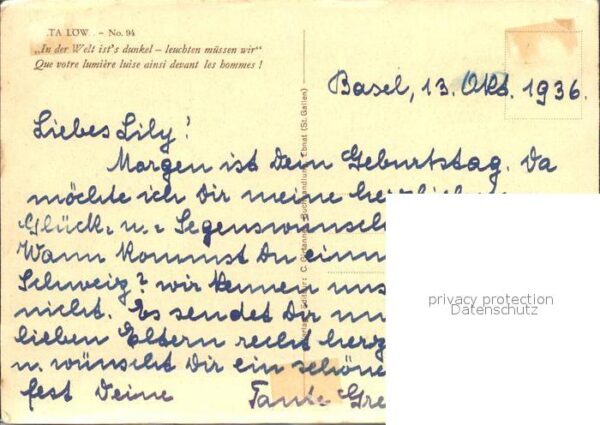 TA LÖW. – No. 94
„In der Welt ist's dunkel – leuchten müssen wir“
Que votre lumière luise ainsi devant les hommes !
Basel, 13. Okt. 1936.
Liebes Lily!
Morgen ist Dein Geburtstag. Da
möchte ich Dir meine
Glück- u.- Segenswünsche
Wann kommst Du
Schweiz? wir kennen uns
nicht. Es sendet Dir
lieben Eltern recht
u. wünscht Dir ein
fest Deine Tante Gre
Editeur: C. Buchhandlung, Ebnat (St. Gallen)
privacy protection
Datenschutz